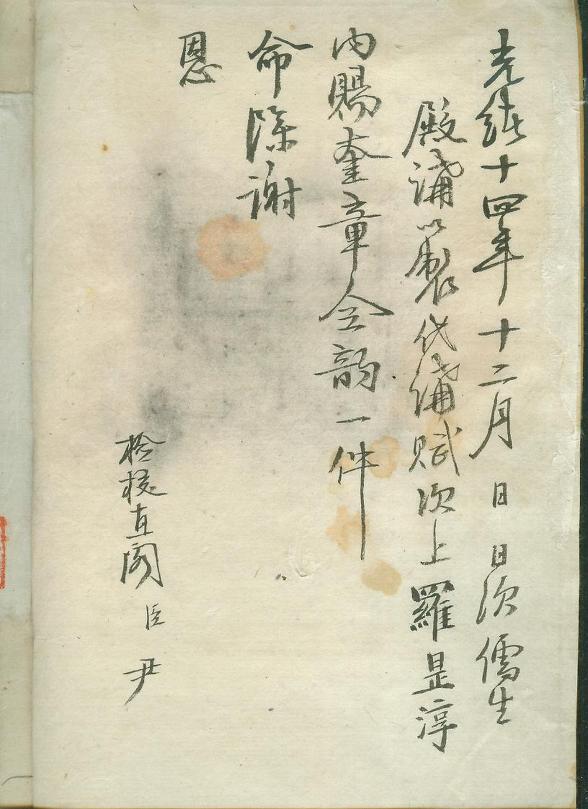 光緖十四年十二月 日 日次儒生
殿講以製代講賦次上羅是淳
內賜奎章全韻一件
命除謝
恩
檢校直閣臣尹